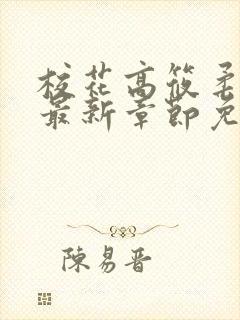 校花高筱柔
最新章節免
陳易晋